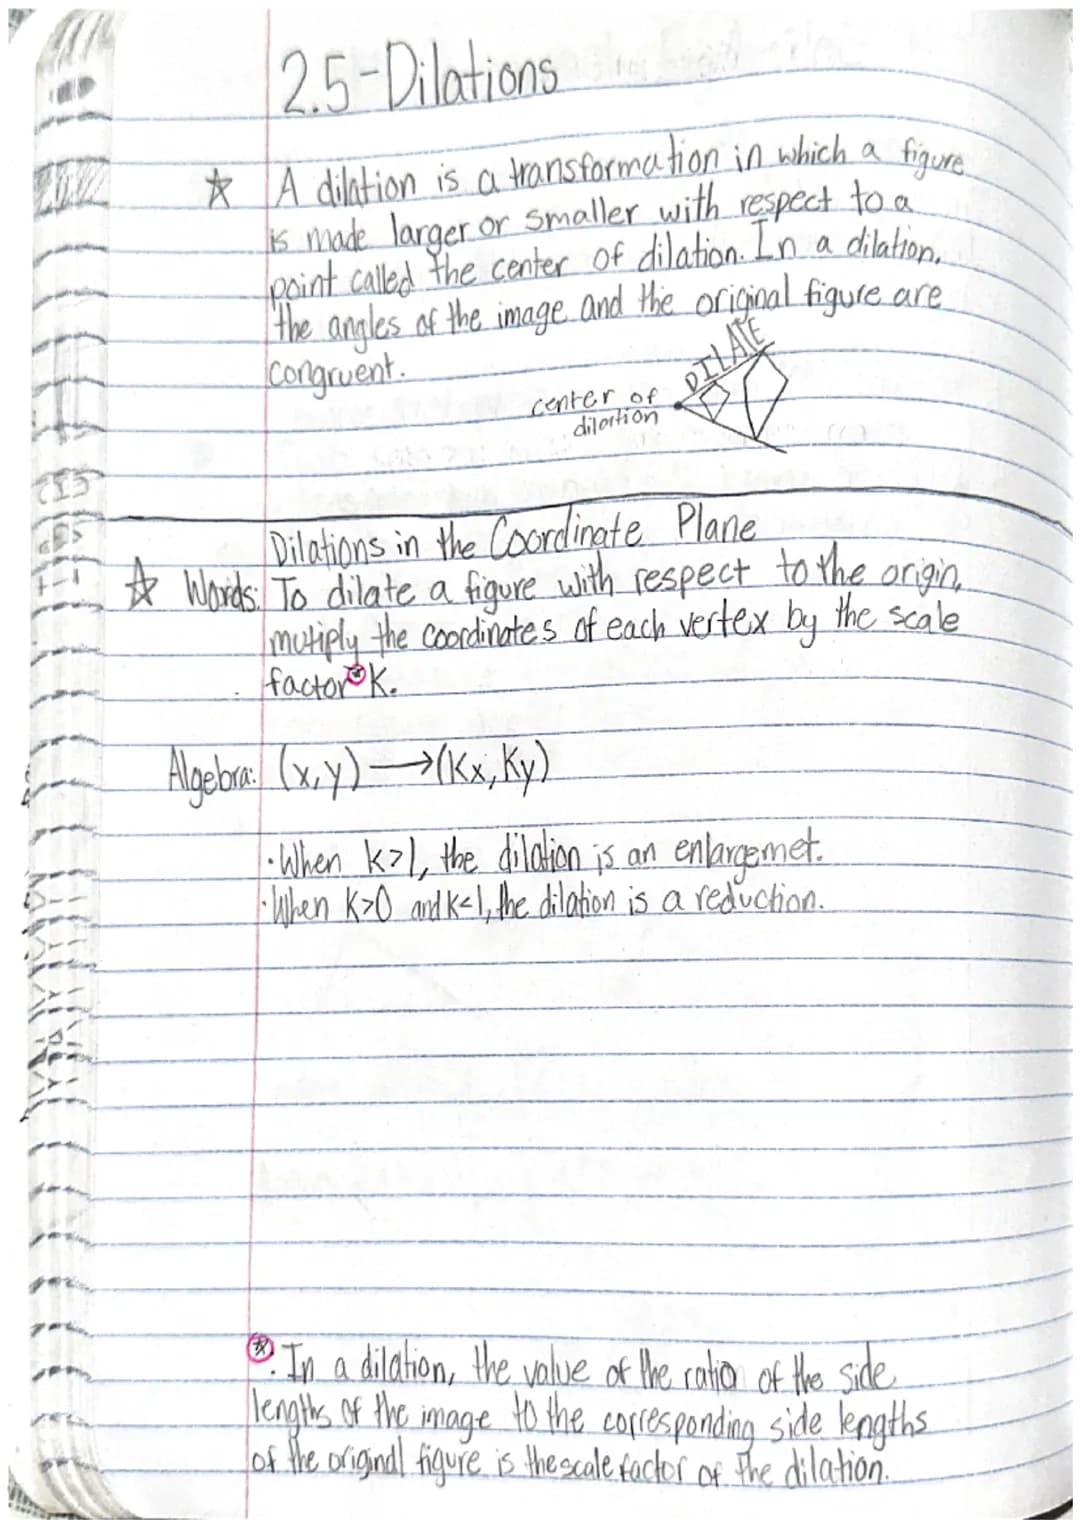 2.5-Dilations
☆ A dilation is a transformation in which a figure
is made larger or smaller with respect to a
point called the center of dilation. In a dilation,
the angles of the image and the original figure are
congruent.
DILATE
center of
dilation
Dilations in the Coordinate Plane
☆ Words: To dilate a figure with respect to the origin,
mutiply the coordinates of each vertex by the scale
factor⍟K.
Algebra: (x,y)⟶(Kx,Ky)
·When k>1, the dilation is an enlargemet.
·When K>0 and K<1, the dilation is a reduction.
⍟. In a dilation, the value of the ratio of the side
lengths of the image to the corresponding side lengths
of the original figure is the scale factor of the dilation.